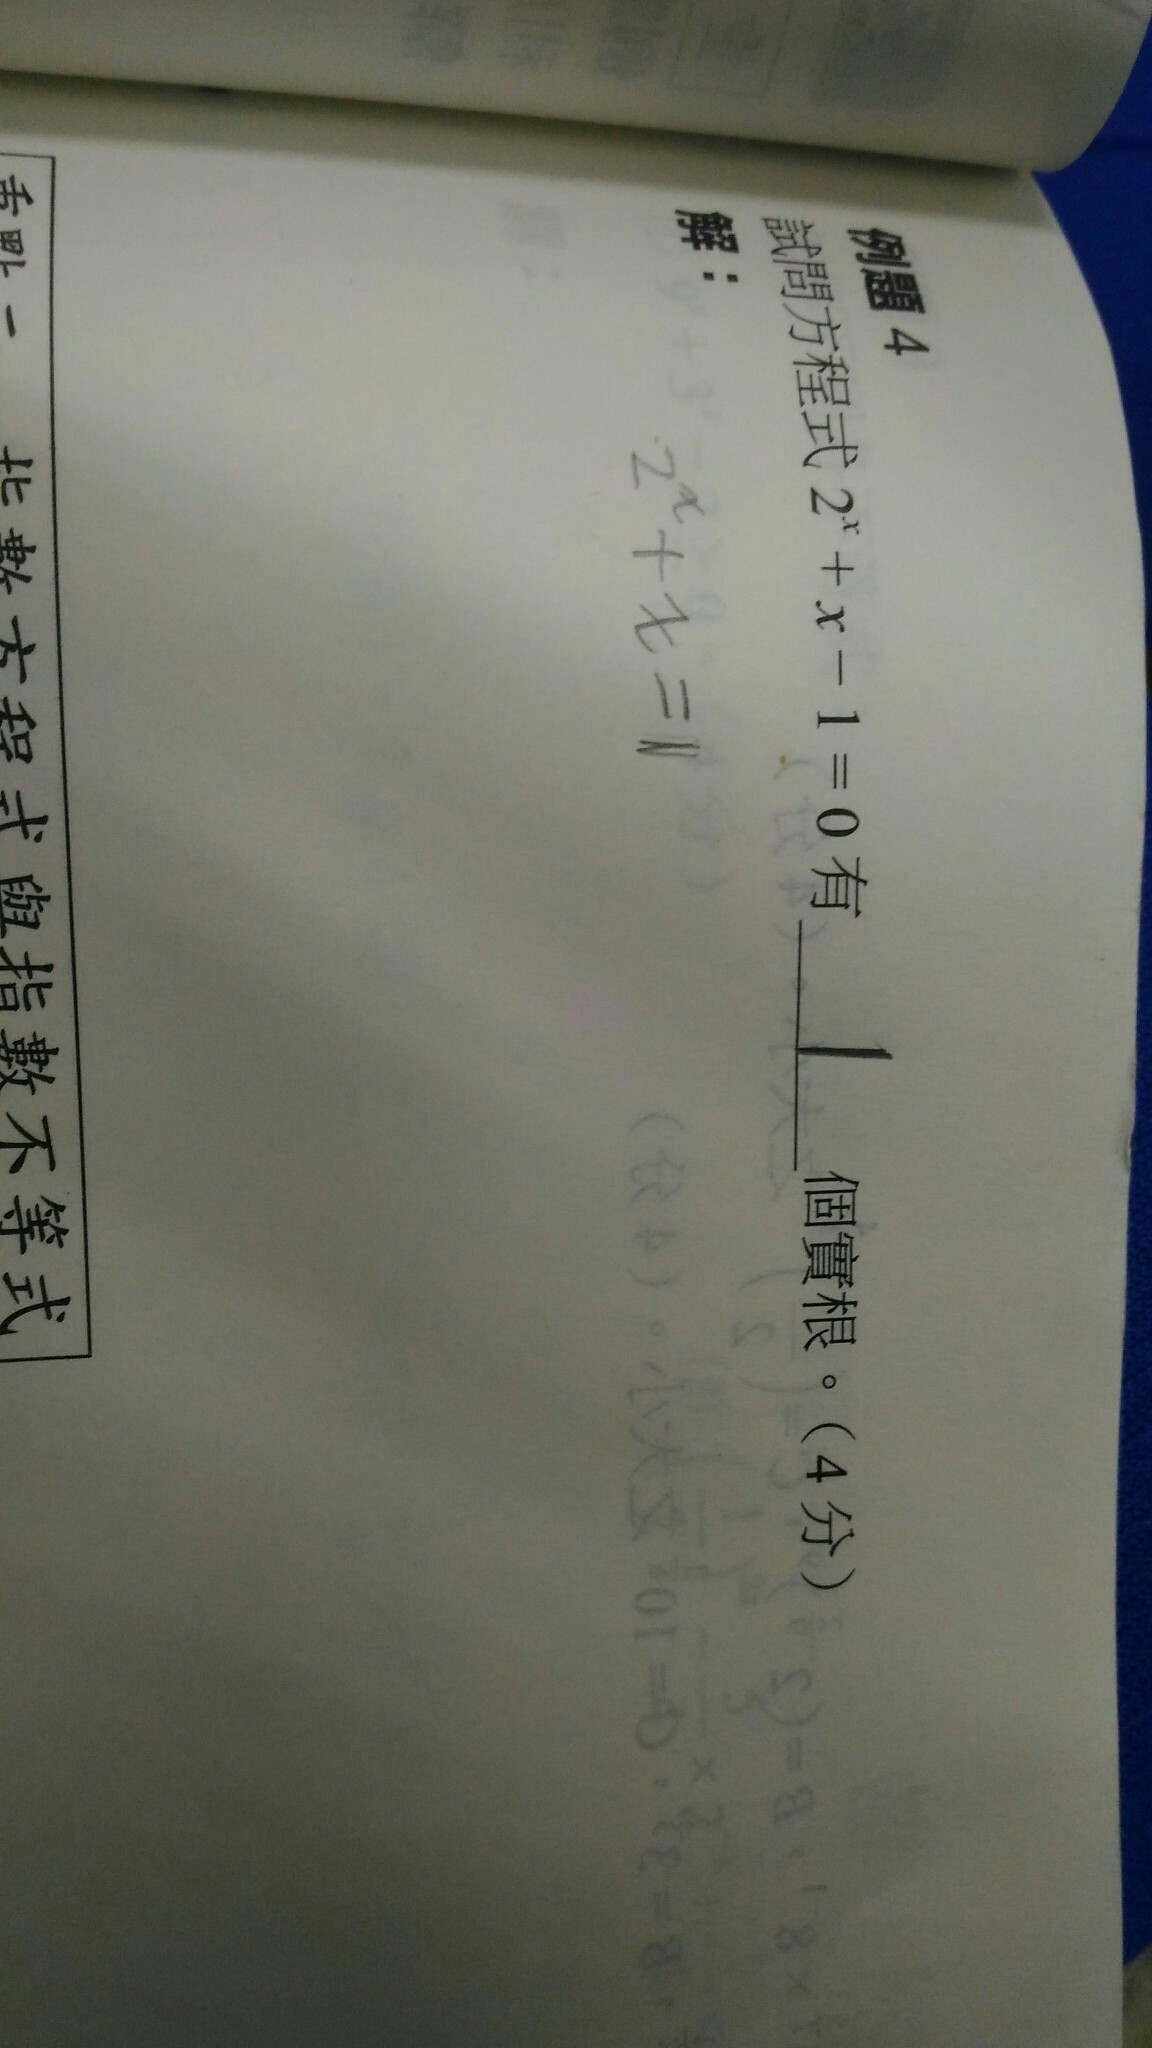 例題 4
試問方程式 2ˣ + x − 1 = 0 有 1 個實根。(4 分)
解：
2ˣ + x = 1
指數方程式與指數不等式